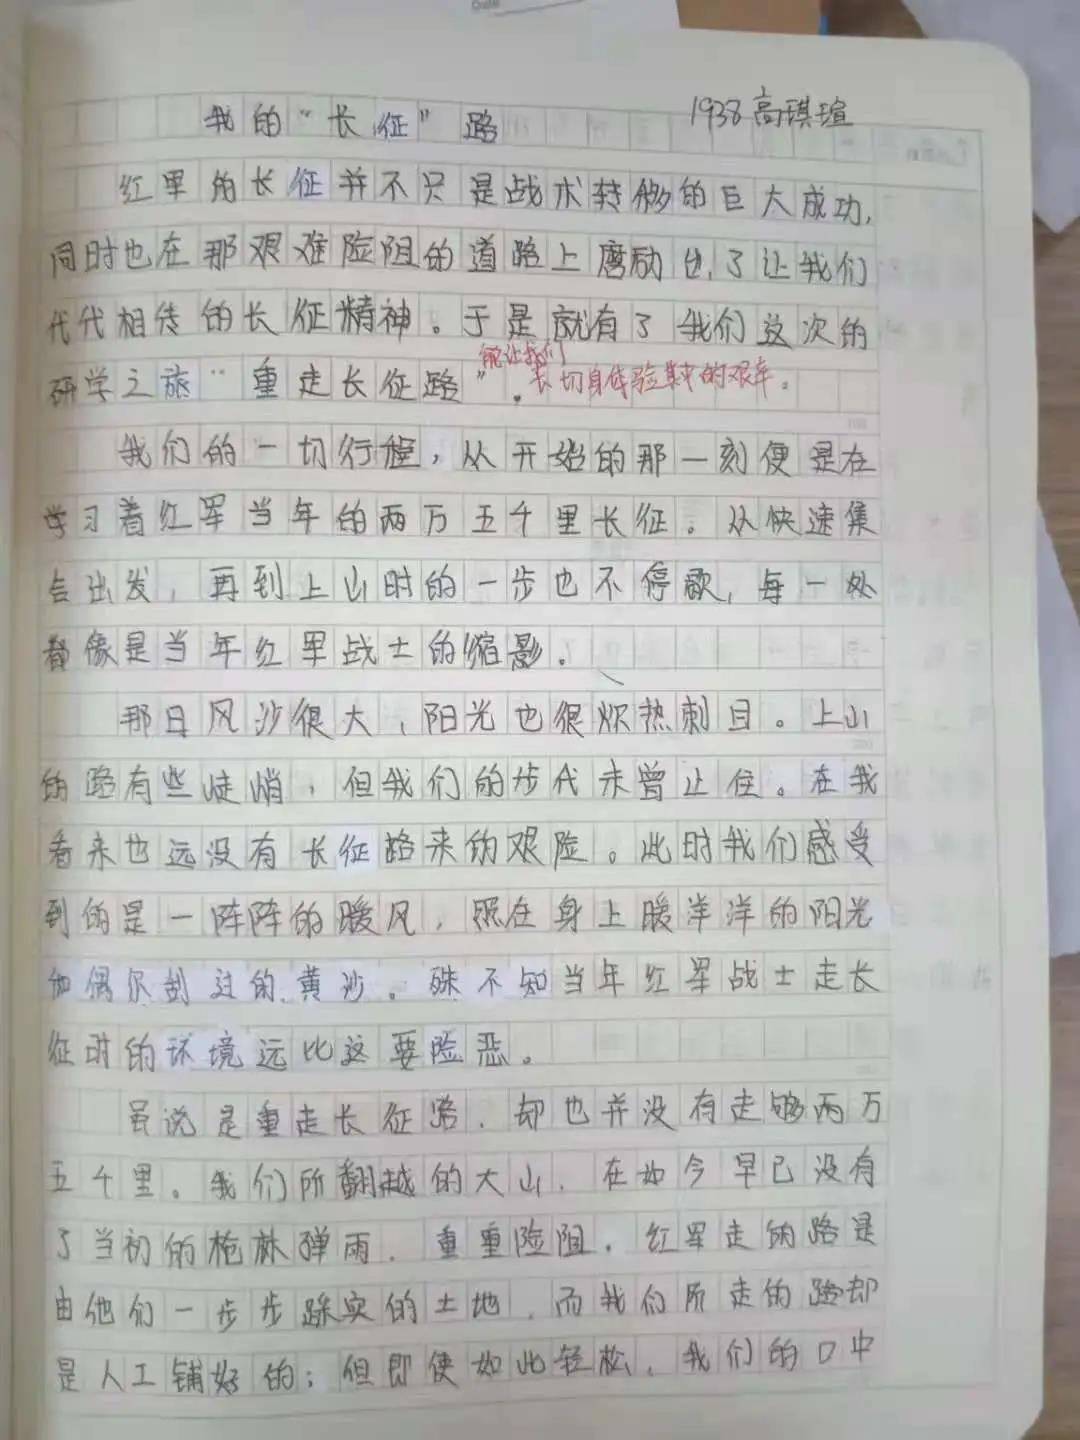 我的“长征”路 1938 高琪瑄
红军的长征并不只是战术转移的巨大成功，
同时也在那艰难险阻的道路上磨励出了让我们
代代相传的长征精神。于是就有了我们这次的
能让我们
研学之旅“重走长征路”。去切身体验其中的艰辛。
我们的一切行程，从开始的那一刻便是在
学习着红军当年的两万五千里长征。从快速集
合出发，再到上山时的一步也不停歇，每一处
都像是当年红军战士的缩影。
那日风沙很大，阳光也很炽热刺目。上山
的路有些陡峭，但我们的步伐未曾止住。在我
看来也远没有长征路来的艰险。此时我们感受
到的是一阵阵的暖风，照在身上暖洋洋的阳光
和偶尔刮过的黄沙。殊不知当年红军战士走长
征时的环境远比这要险恶。
虽说是重走长征路，却也并没有走够两万
五千里。我们所翻越的大山，在如今早已没有
了当初的枪林弹雨，重重险阻。红军走的路是
由他们一步步踩实的土地，而我们所走的路却
是人工铺好的；但即使如此轻松，我们的口中